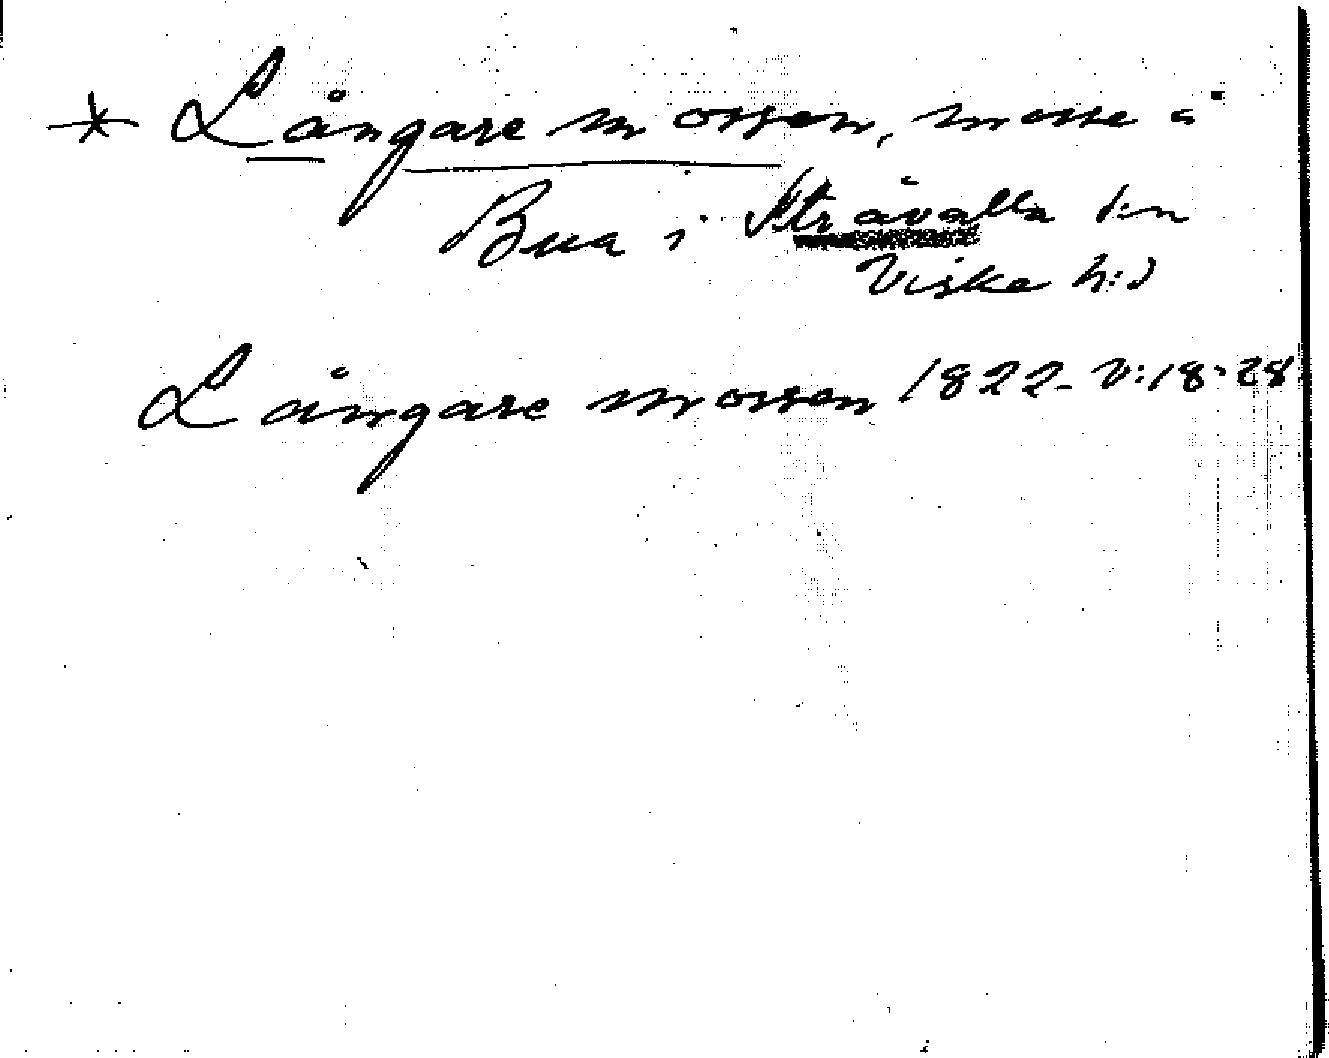 * Långare mossen, mosse å
Bua i Stråvalla s:n
Viske h:d
Långare mossen 1822. V:18:28